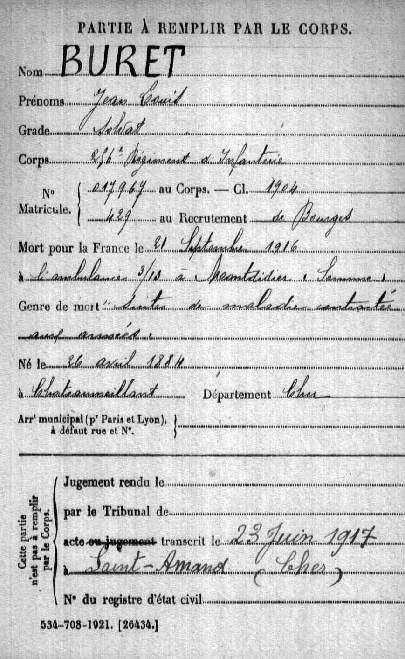 PARTIE À REMPLIR PAR LE CORPS.
Nom BURET
Prénoms Jean Louis
Grade Soldat
Corps 256e Régiment d'Infanterie
N° Matricule. { 017967 au Corps. — Cl. 1904
429 au Recrutement de Bourges
Mort pour la France le 21 Septembre 1916
à l'ambulance 3/13 à Montdidier (Somme)
Genre de mort Suites de maladie contractée
aux armées.
Né le 26 avril 1884
à Chateaumeillant Département Cher
Arrt municipal (pr Paris et Lyon), à défaut rue et N°. }
Cette partie n'est pas à remplir par le Corps. {
Jugement rendu le
par le Tribunal de
acte ou jugement transcrit le 23 Juin 1917
à Saint-Amand (Cher)
N° du registre d'état civil
534-708-1921. [26434.]